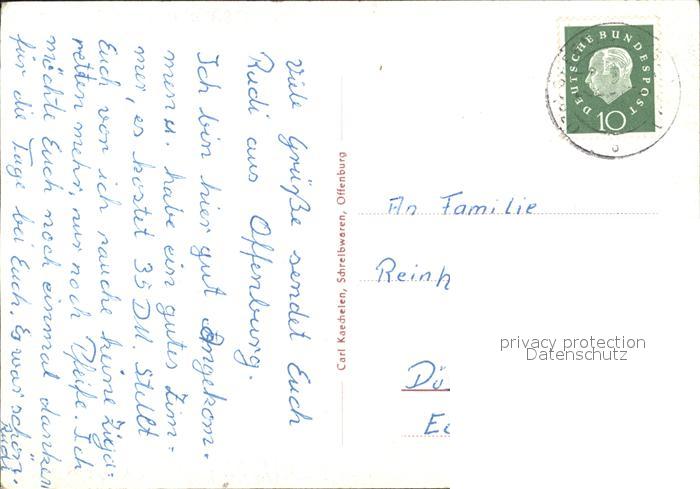 Viele Grüße sendet Euch
Rudi aus Offenburg.
Ich bin hier gut Angekom-
men u. habe ein gutes Zim-
mer, es kostet 35 DM. Stellt
Euch vor ich rauche keine Ziga-
retten mehr, nur noch Pfeife. Ich
möchte Euch noch einmal danken
für die Tage bei Euch. Es war schön.
Rudi
Carl Kaechelen, Schreibwaren, Offenburg
DEUTSCHE BUNDESPOST
10
An Familie
Reinh
Dü
privacy protection
Datenschutz